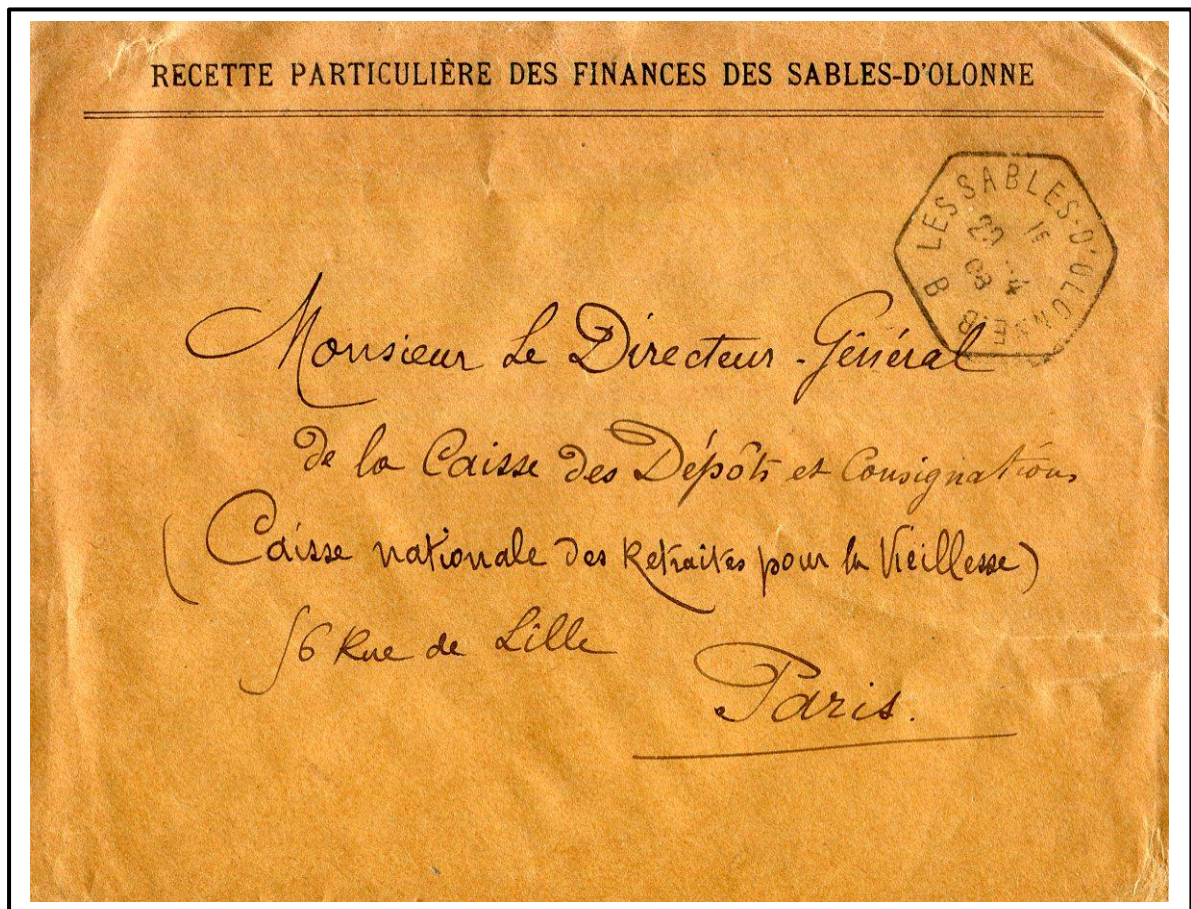 RECETTE PARTICULIÈRE DES FINANCES DES SABLES-D'OLONNE
LES SABLES-D'OLONNE B B
Monsieur Le Directeur-Général
de la Caisse des Dépôts et Consignations
(Caisse nationale des Retraites pour la Vieillesse)
56 Rue de Lille
Paris.